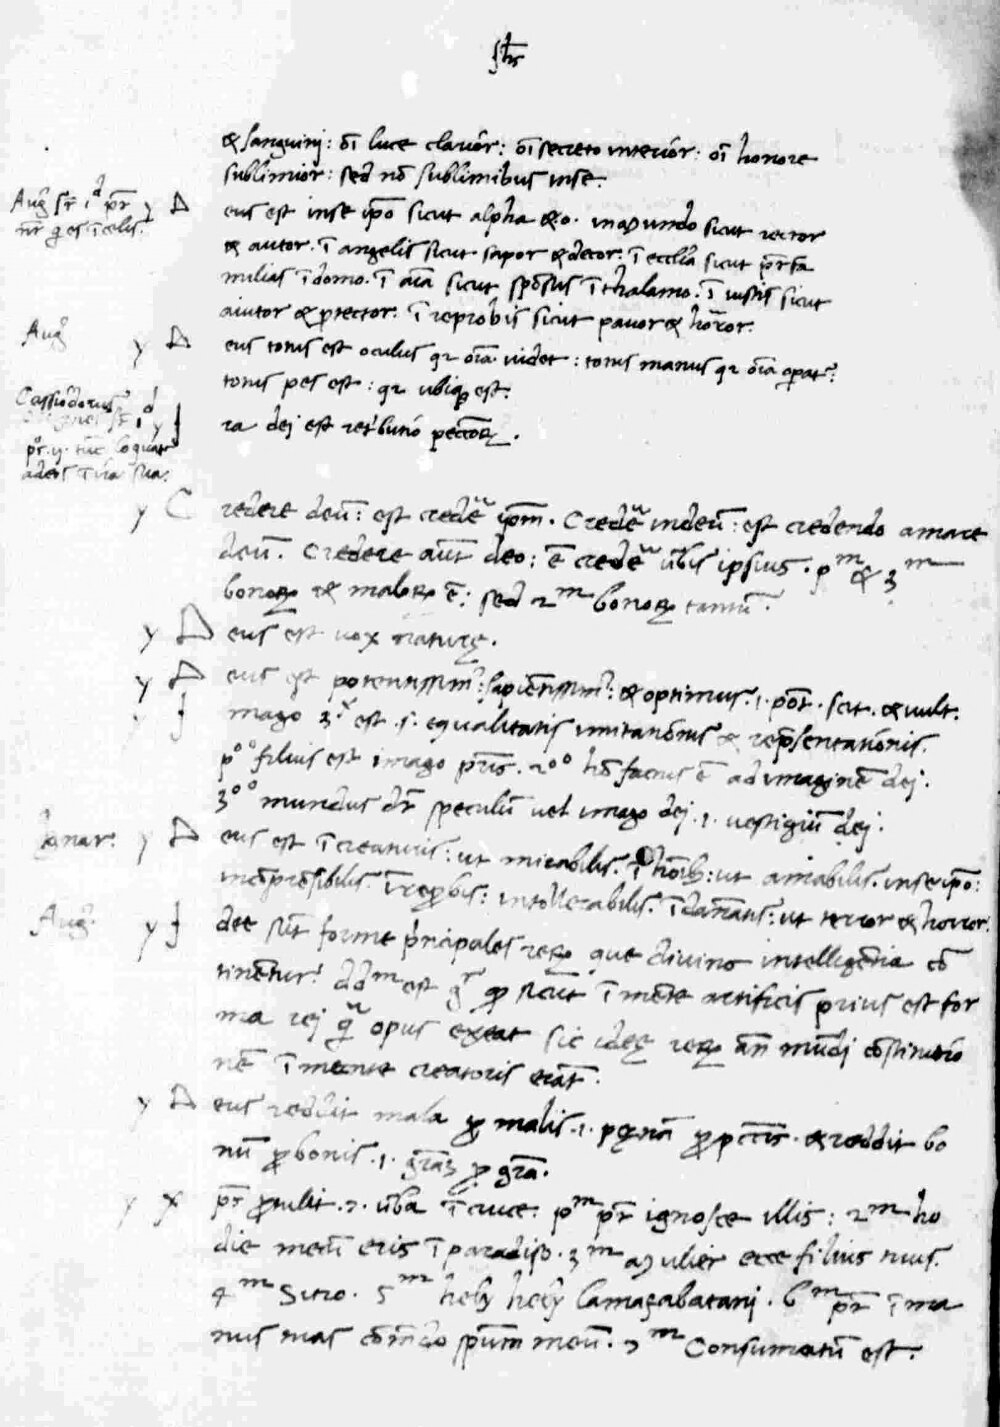 Jhs
& sanguinj: oī luce clarior: oī secreto interior: oī honore
sublimior: sed nō sublimibus inse.
Aug9 sr̄ 1d pr̄
nr̄ q es ī celis.
y D eus est inse ip̄o sicut alpha & o. in mundo sicut rector
& autor. ī angelis sicut sapor & decor. ī ecclīa sicut pr̄fa
milias ī domo. ī aīa sicut spōsus ī thalamo. ī iustis sicut
aiutor & ꝓtector. ī reprobis sicut pauor & horror.
Aug9
y D eus totus est oculus qr oīa uidet: totus manus qr oīa oꝑat2:
totus pes est: qr ubiqꝫ est.
Cassiodorus
pꝰ. y. tūc loquat
ad eos ī ira sua.
y I ra dej est retributio peccatoꝝ.
y C redere deū: est credere ip̄m. Credere in deū: est credendo amare
deū. Credere aūt deo: ē credere ūbis ipsius. pm & 3m
bonoꝝ & maloꝝ ē: sed 2m bonoꝝ tantū.
y D eus est uox naturę.
y D eus est potentissim9: sapiētissim9: & optimus .i. pōt. scit. & uult.
y I mago 3x est .s. equalitatis imitatiōnis & rep̄sentatiōnis.
poo filius est imago pr̄is. 2oo hō factus ē ad imaginē dej.
3oo mundus dr̄ speculū uel imago dej .i. uestigiū dej.
y D eus est ī creaturis: ut mirabilis. ī hoībꝫ: ut amabilis. inse ip̄o:
incōp̄ēsibilis. ī reꝓbis: intollerabilis. ī dānatis: ut terror & horror.
Aug9.
y I dee sūt forme p̄ncipales reꝝ que diuina intelligētia cō
tinētur. ddm est gr̄ ꝙ sicut ī mēte artificis prius est for
ma rej q̄ opus exeat sic ideę reꝝ an̄ mūdj cōstitutio
nē ī mente creatoris erāt.
y D eus reddit mala ꝓ malis .i. pęnā ꝓ pctīs. & reddit bo
nū ꝓ bonis .i. gr̄aꝫ ꝓ gr̄a.
y X pꝰ ꝓtulit .7. ūba ī cruce. pm pr̄ ignosce illis: 2m ho
die mecū eris ī paradiso. 3m mulier ecce filius tuus.
4m Sitio. 5m hely hely lamazabatanj. 6m pr̄ ī ma
nus tuas cōmēdo spūm meū. 7m Consumatū est.